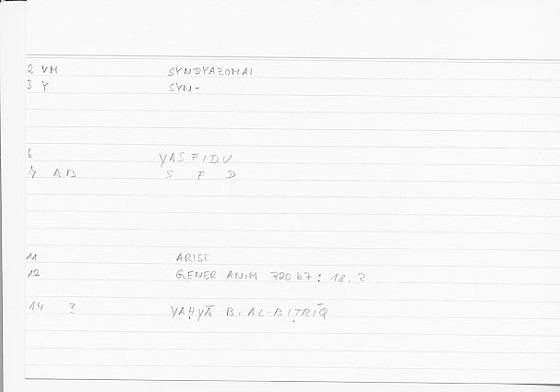 2 VM SYNDYAZOMAI
3 Y SYN-
6 YASFIDU
7 AB S F D
11 ARIST
12 GENER ANIM 720 b7 : 18.2
14 ? YAḤYĀ B. AL-BIṬRĪQ